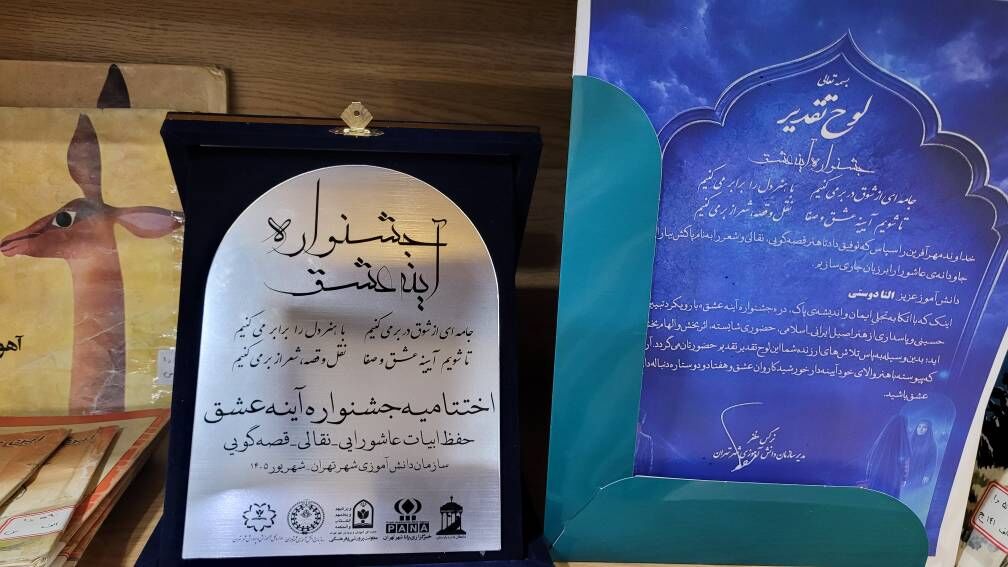 جشنواره
آینه عشق
جامه ای از شوق در بر می کنیم با هنر دل را برابر می کنیم
تا شویم آیینه عشق و صفا نقل و قصه، شعر از بر می کنیم
اختتامیه جشنواره آینه عشق
حفظ ابیات عاشورایی_نقالی_قصه گویی
سازمان دانش آموزی شهر تهران_ شهریور ۱۴۰۵
معاونت پرورشی و فرهنگی
PANA
خبرگزاری پانا شهر تهران
بسمه تعالی
لوح تقدیر
جشنواره آینه عشق
جامه ای از شوق در بر می کنیم با هنر دل را برابر می کنیم
تا شویم آیینه عشق و صفا نقل و قصه، شعر از بر می کنیم
خداوند مهرآفرین را سپاس که توفیق داد تا هنر قصه گویی، نقالی و شعر را به نام پاکش بیارا
جاودانه ی عاشورا را بر زبان جاری سازیم.
دانش آموز عزیز النا دوستی
اینک که با اتکا به تجلی ایمان و اندیشه ی پاک، در «جشنواره آینه عشق» با رویکرد تبیین
حسینی و پاسداری از هنر اصیل ایرانی_اسلامی، حضوری شایسته، اثربخش و الهام بخش
اید؛ بدین وسیله به پاس تلاش های ارزنده شما این لوح تقدیر تقدیر حضورتان می گردد. آر
که پیوسته با هنر والای خود آیینه دار خورشید کاروان عشق و هفتاد و دو ستاره دنباله دا
عشق باشید.
نرگس مظفر
مدیر سازمان دانش آموزی شهر تهران
آهو